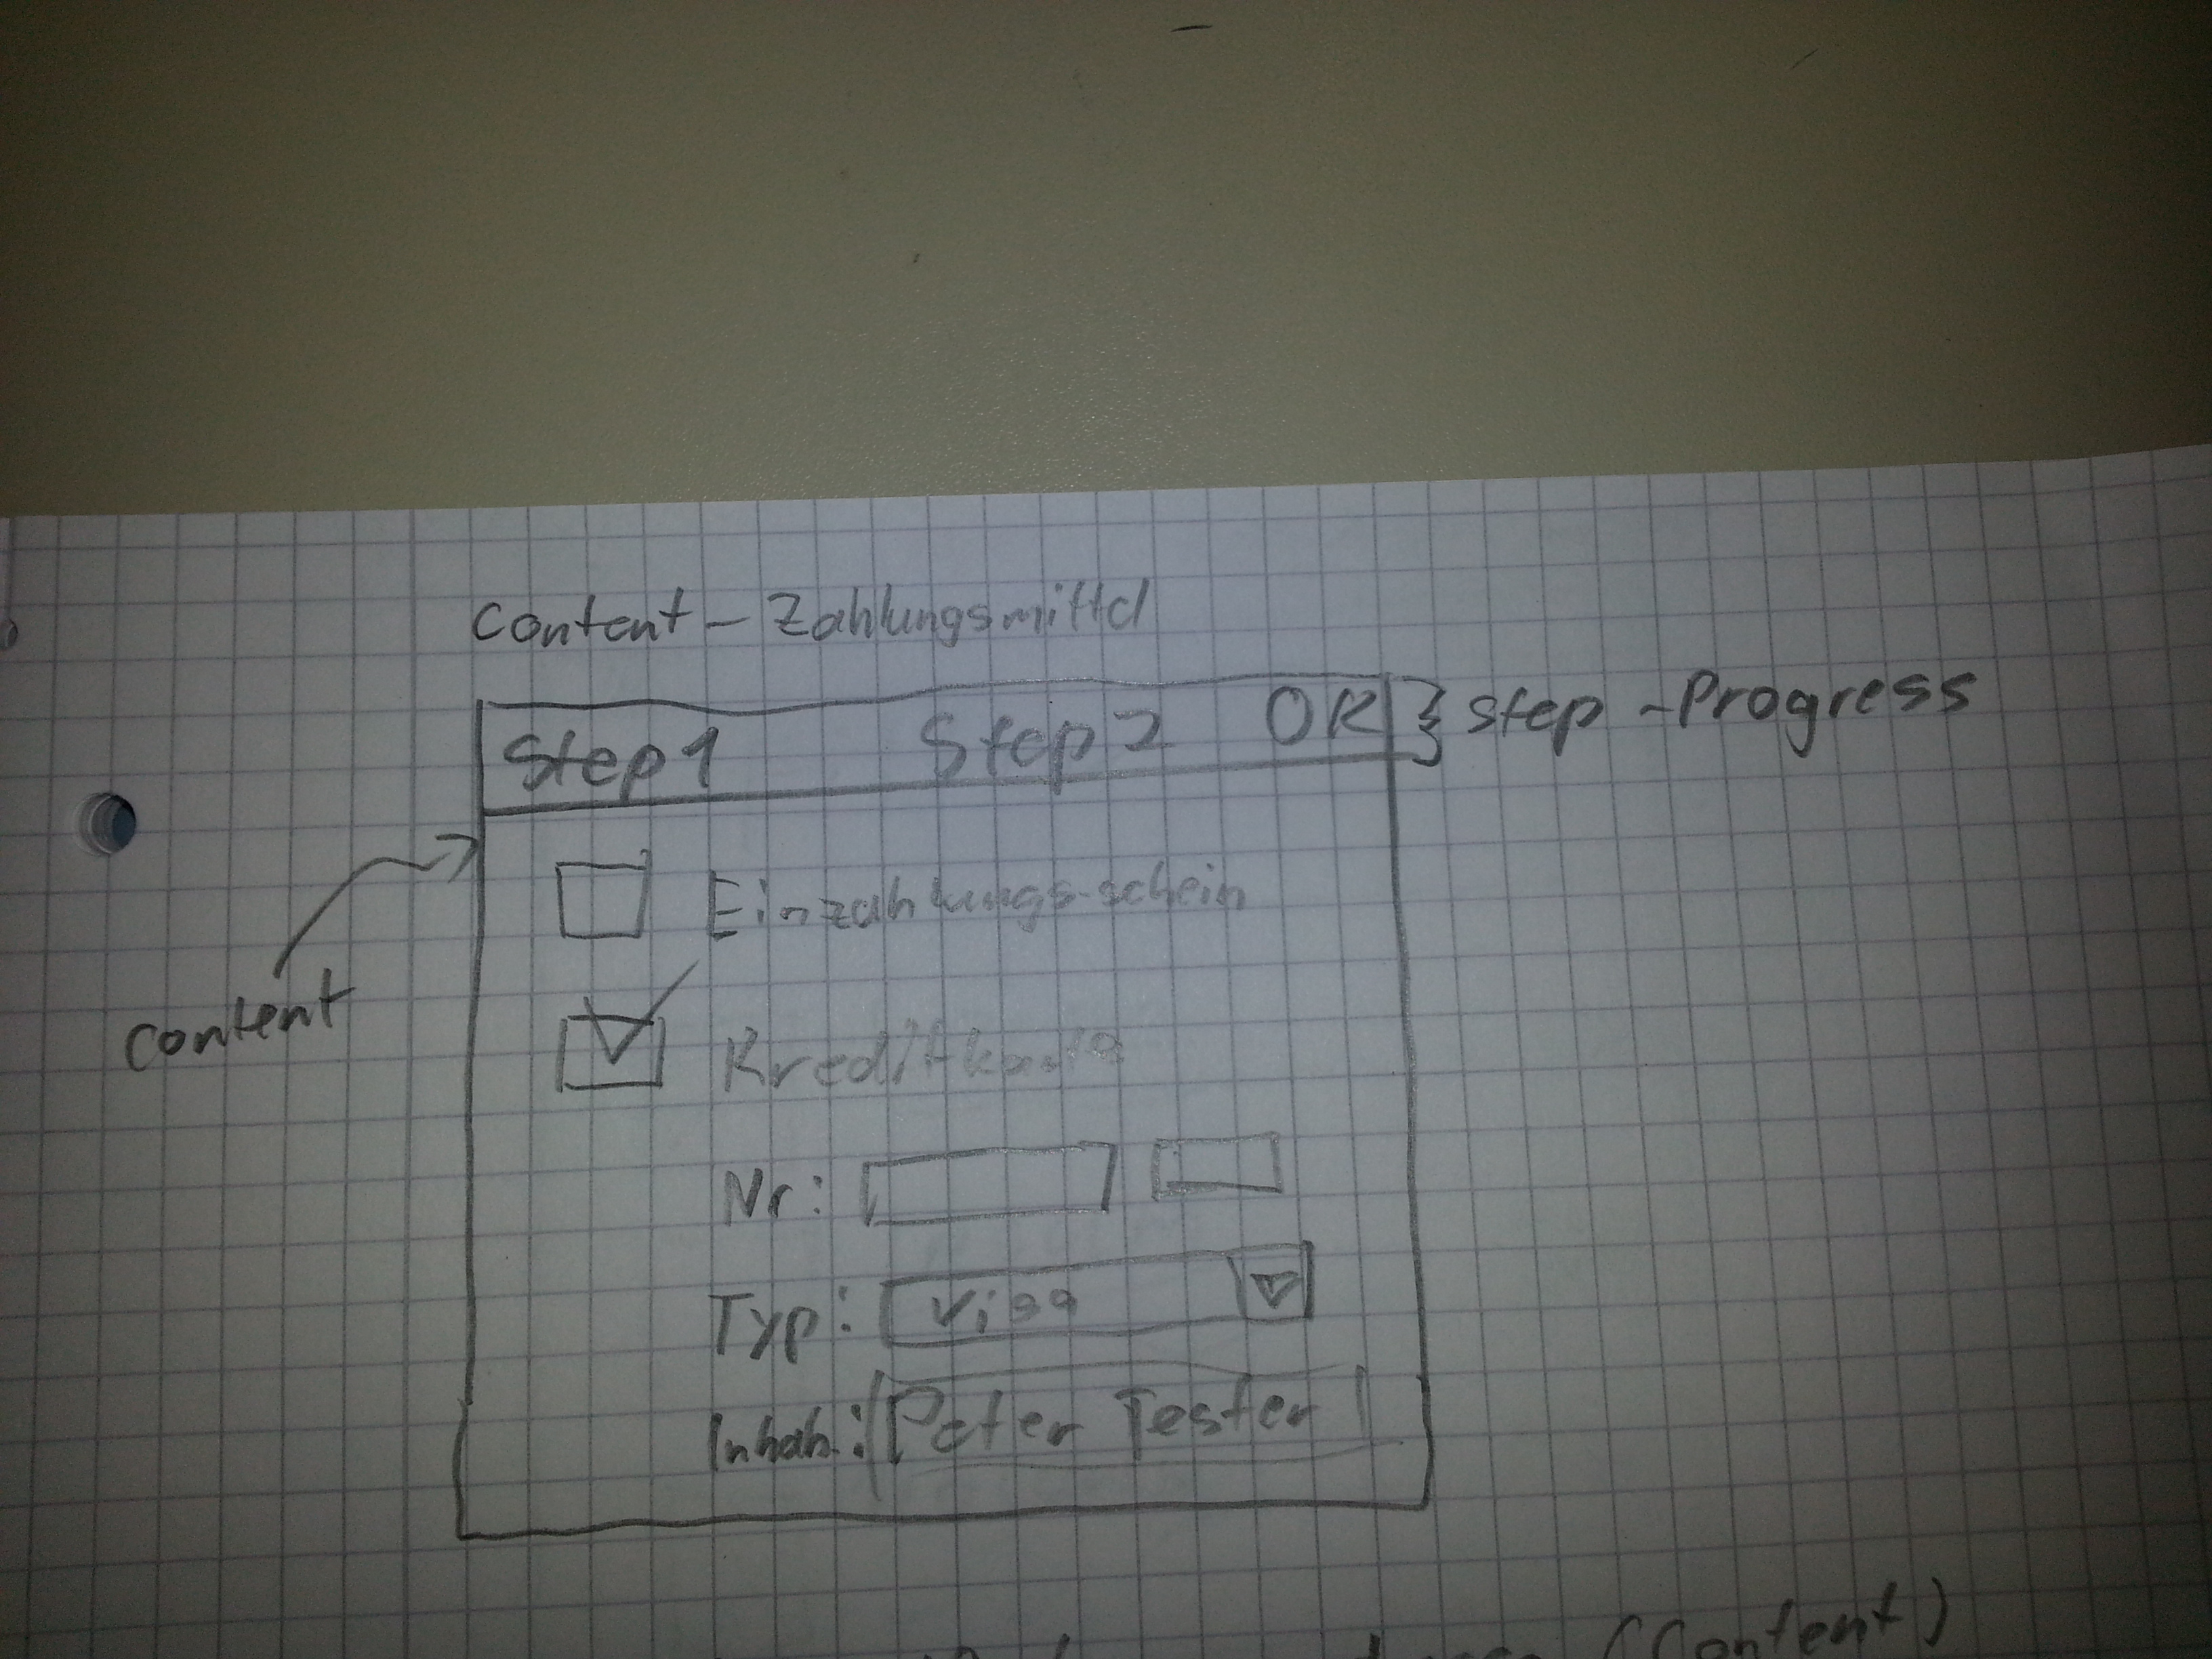 Content - Zahlungsmittel
Step 1 Step 2 OK } Step - Progress
Einzahlungsschein
content
Kreditkarte
Nr:
Typ: Visa
Inhab.: Peter Tester
(Content)